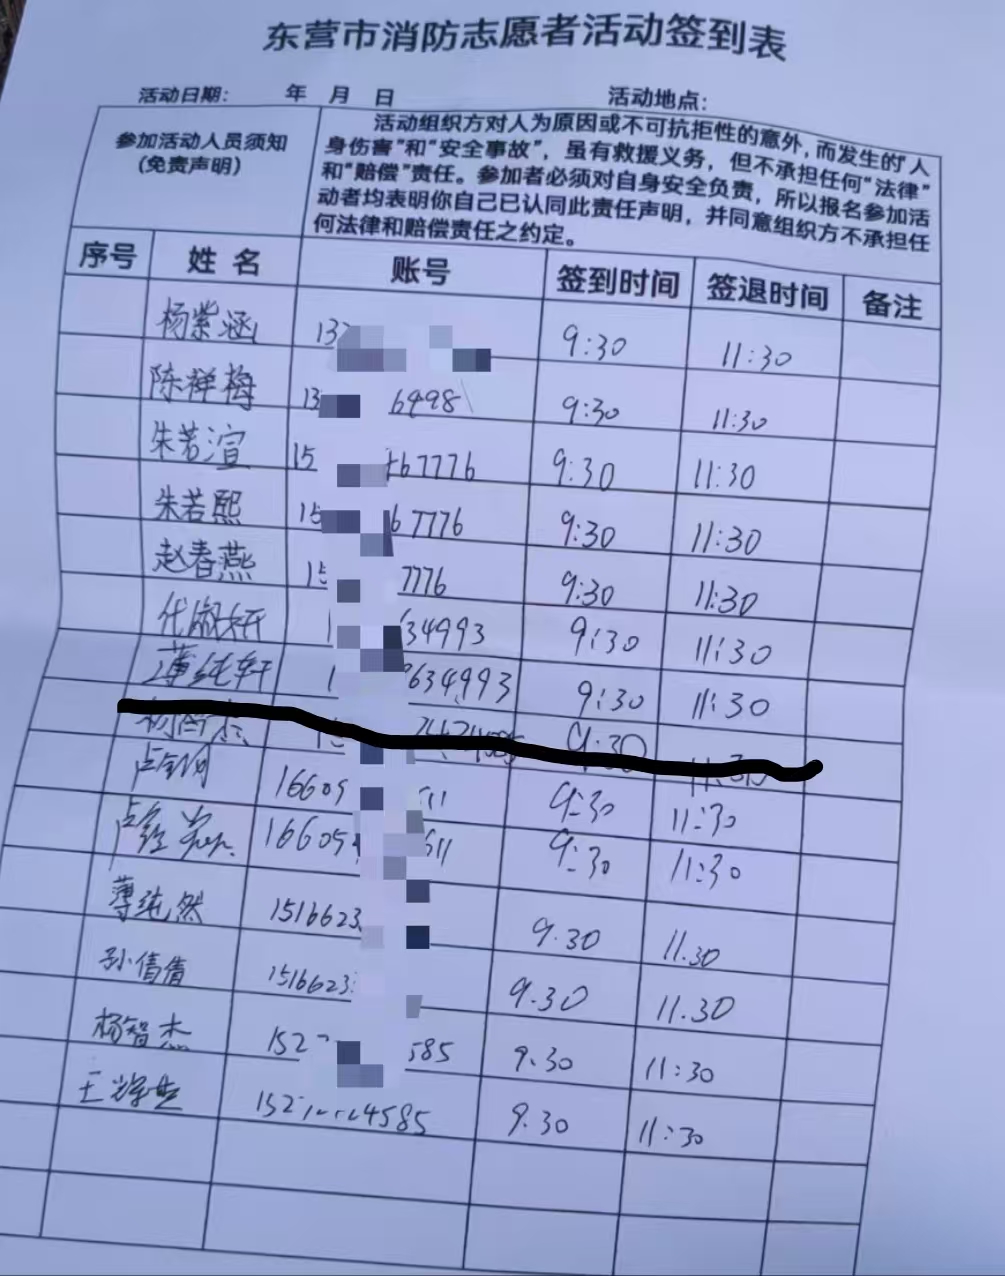 东营市消防志愿者活动签到表
活动日期: 年 月 日 活动地点:
参加活动人员须知
(免责声明)
活动组织方对人为原因或不可抗拒性的意外,而发生的“人
身伤害”和“安全事故”,虽有救援义务,但不承担任何“法律”
和“赔偿”责任。参加者必须对自身安全负责,所以报名参加活
动者均表明你自己已认同此责任声明,并同意组织方不承担任
何法律和赔偿责任之约定。
序号 姓 名 账号 签到时间 签退时间 备注
杨紫涵 13 9:30 11:30
陈祥梅 13 6998 9:30 11:30
朱若渲 15 67776 9:30 11:30
朱若熙 15 67776 9:30 11:30
赵春燕 15 7776 9:30 11:30
代淑轩 1 634993 9:30 11:30
薄纯轩 1 634993 9:30 11:30
9:30 11:30
16609 611 9:30 11:30
16609 611 9:30 11:30
薄纯然 1516623 9.30 11.30
孙倩倩 1516623 9.30 11.30
杨智杰 152 585 9.30 11:30
王 152 4585 9.30 11:30